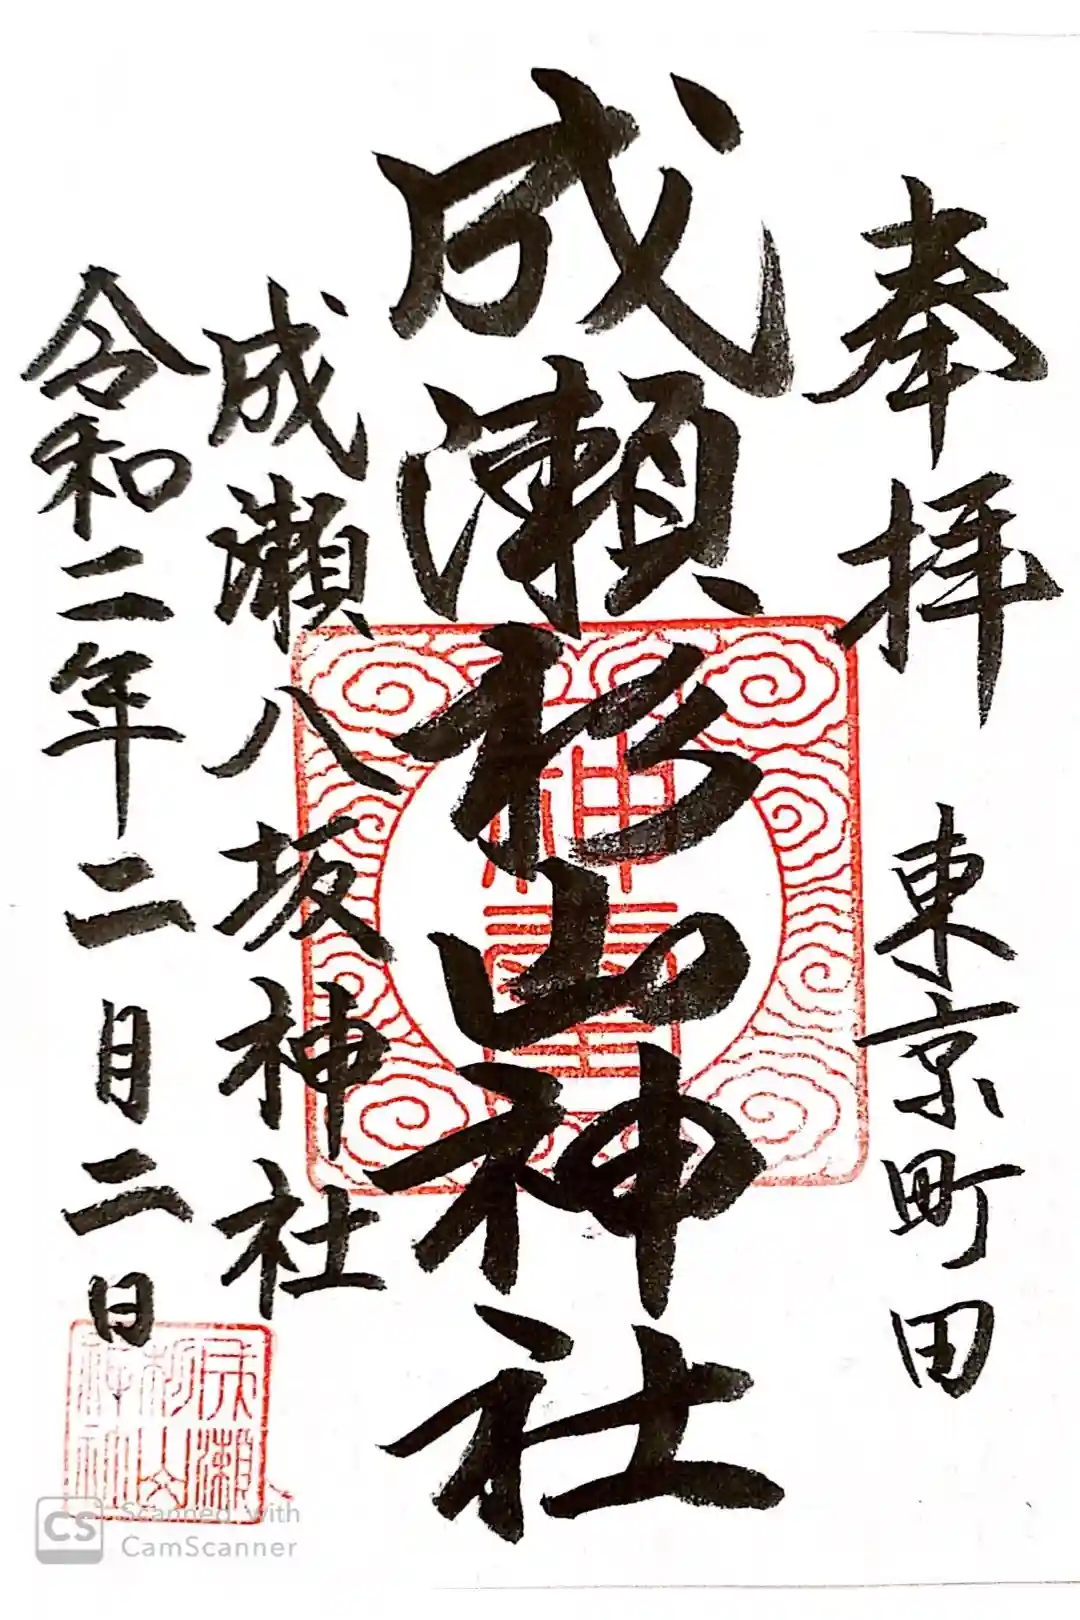 奉拝 東京町田
成瀬杉山神社
成瀬八坂神社
令和二年二月二日
成瀬
杉山
神社
CS Scanned with
CamScanner